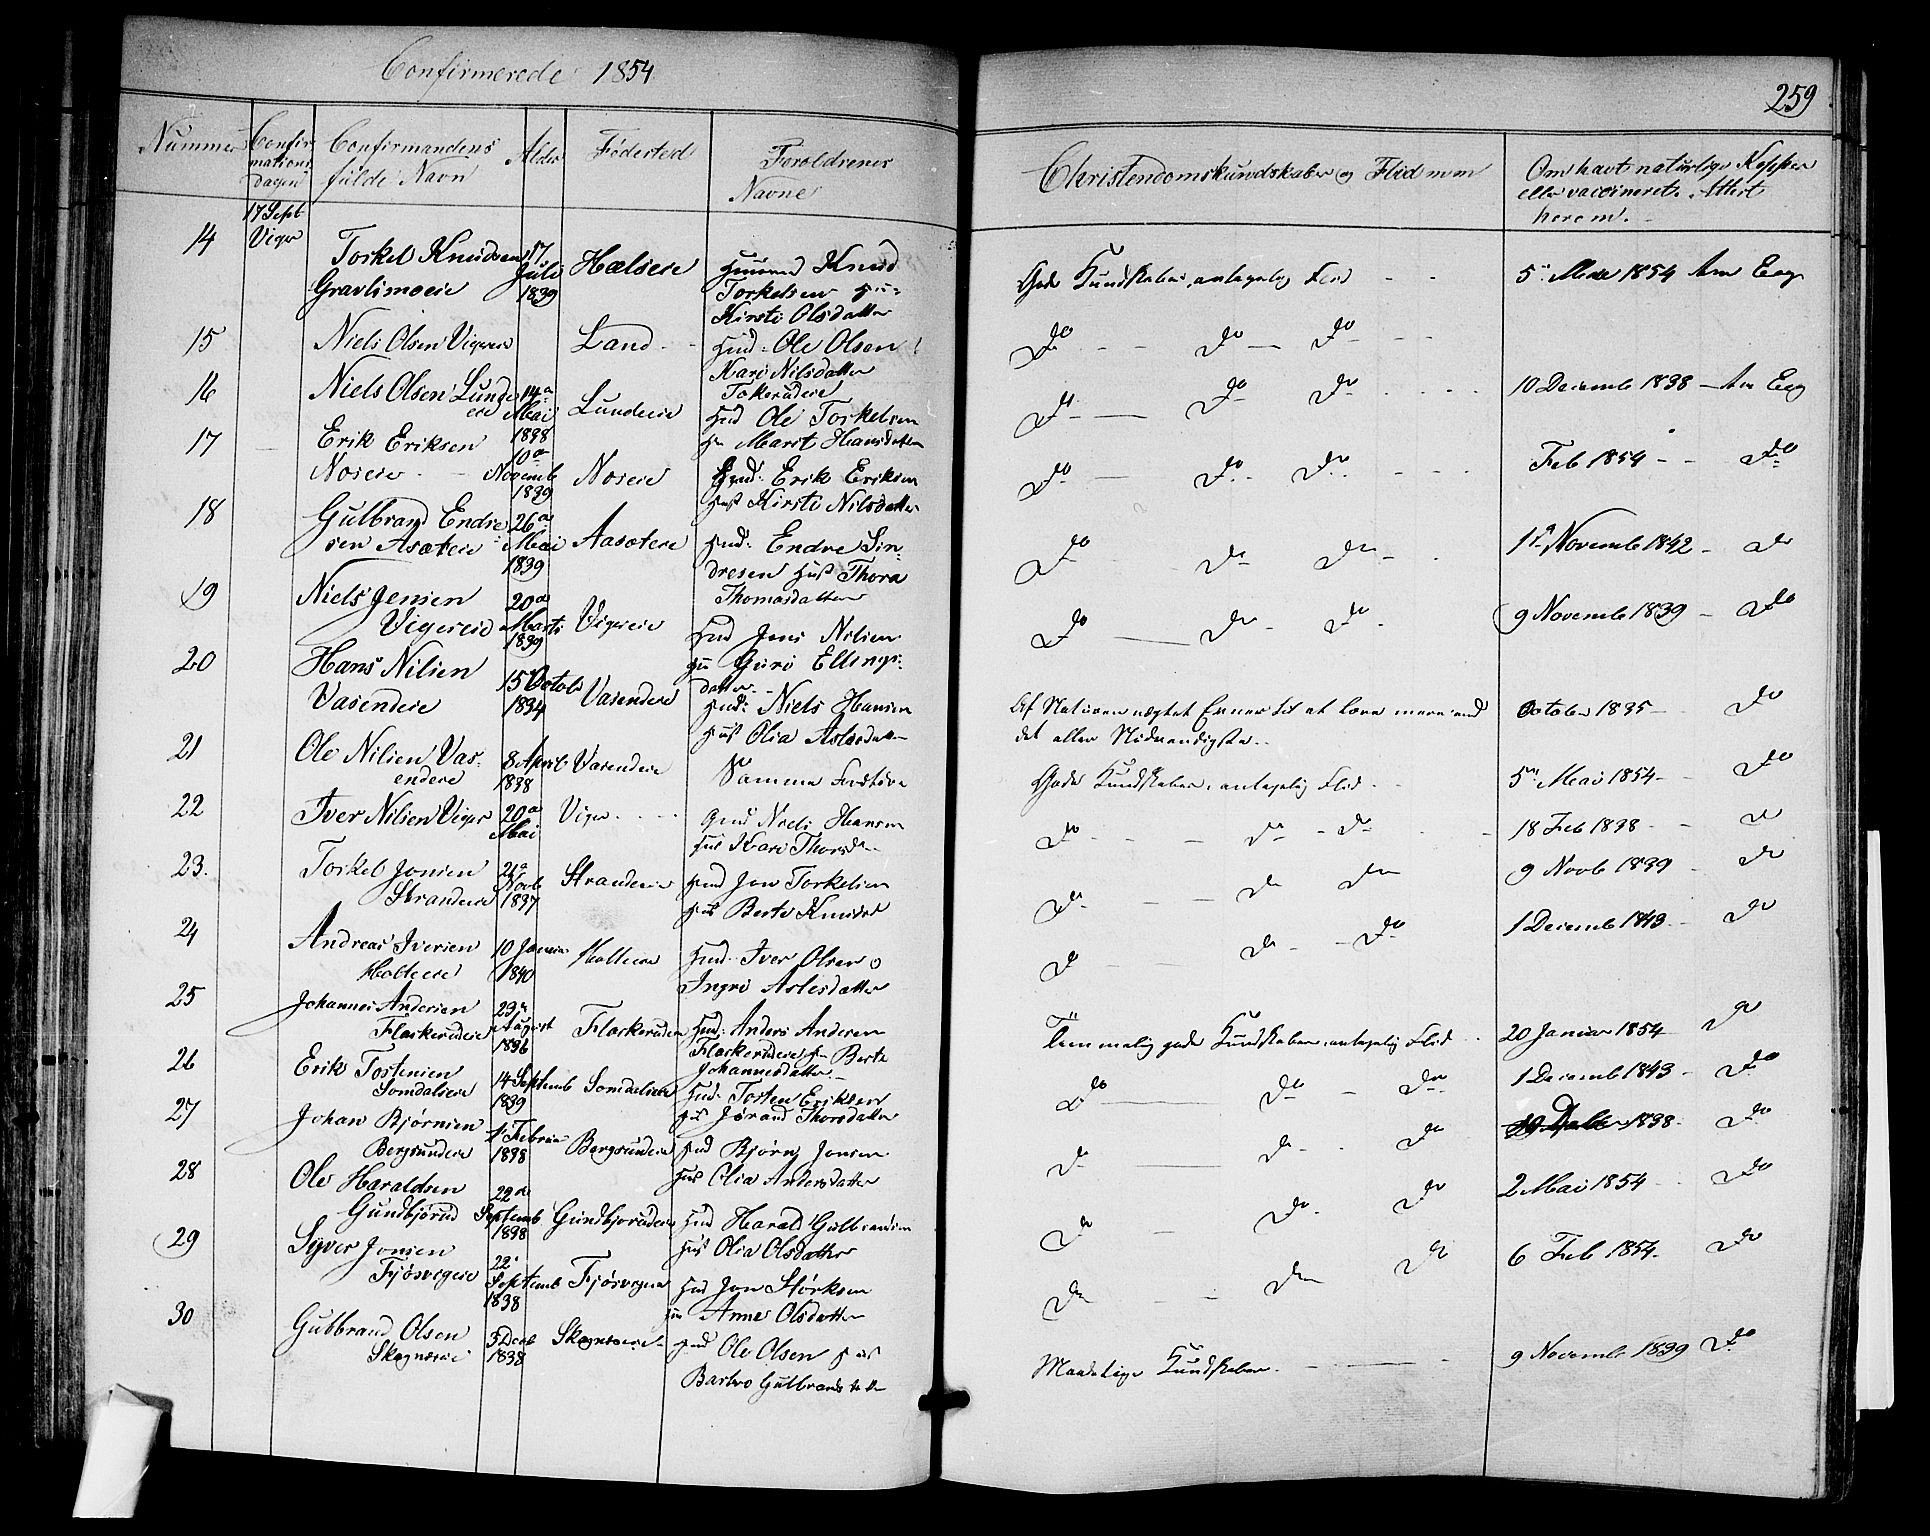 Confirmerede 1854
259
Nummer
Confir
mations
dagen
Confirmandens
fulde Navn
Alder
Fødested
Foroldrenes
Navne
Christendomskundskaber og Flid m m
Om havt naturlige Kopper
eller vaccineret. Attest
herom.
14
17 Sept
Viger
Torkel Knudsen
Gravlimoeie
17
Juli
1839
Hælseie
Knud
Torkelsen
Kirsti Olsdatter
Gode Kundskaber, antagelig Flid
5 1854 Am Eeg
15
Niels Olsen Vigereie
Land
Husd: Ole Olsen
Kari Nilsdatter
Tokerudeie
Do Do Do
16
Niels Olsen Lunde
eie
14a
Mai
1838
Lundeeie
Husd Ole Torkelsen
Hu Marit Hansdatter
Do Do Do
10 Decemb 1838 Am Eeg
17
Erik Eriksen
Noseie
10a
Novemb
1839
Noseie
Husd: Erik Eriksen
Hust Kirsti Nilsdatter
Do Do Do
Feb 1854 Do
18
Gulbrand Endre
sen Asæteie
26a
Mai
1839
Aasæteie
Husd: Endre Sin
dresen Hust Thora
Thomasdatter
Do Do Do
Novemb 1842 Do
19
Niels Jensen
Vigereie
20de
Marts
1839
Vigereie
Husd Jens Nilsen
Hu Guro Ellings
datter
Do Do Do
9 Novemb 1839 Do
20
Hans Nilsen
Vasendeie
15 Octob
1834
Vasendeie
Husd: Niels Hansen
Hust Olia Aslesdatter
Af Naturen nægtet Evner til at lære mere end
det aller Nødvendigste
October 1835 Do
21
Ole Nilsen Vas
endeie
8 April
1838
Vasendeie
Samme Forældre
Gode Kundskaber, antagelig Flid
5 Mai 1854 Do
22
Iver Nilsen Viger
20a
Mai
Viger
Niels Hansen
Hus Kari Thorsd
Do Do Do
18 Feb 1838 Do
23.
Torkel Jonsen
Strandeie
21a
Novb
1837
Strandeeie
Husd Jon Torkelsen
Hus Berte Knudsd
Do Do Do
9 Novb 1839 Do
24
Andreas Iversen
Holteeie
10 Januar
1840
Holteeie
Husd Iver Olsen o
Ingri Aslesdatter
Do Do Do
1 Decemb 1843 Do
25
Johannes Andersen
Flaskerudeie
23
August
1836
Flaskeruden
Husd: Anders Andersen
Flaskerudeie Berte
Johannesdatter
Temmelig gode Kundskaber, antagelig Flid
20 Januar 1854 Do
26
Erik Tostensen
Somdalseie
14 Septemb
1839
Somdalseie
Husd: Tosten Eriksen
Hus Jørand Thorsdatter
Do Do Do
1 Decemb 1843 Do
27
Johan Bjørnsen
Bergsundeie
1 Februar
1838
Bergsundeie
Husd Bjørn Jonsen
Hus Olia Andersdatter
Do Do Do
1838 Do
28
Ole Haraldsen
Gundbjørud
22de
Septemb
1838
Gundbjørudeie
Husd Harald Gulbrandsen
Hus Olia Olsdatter
Do Do Do
2 Mai 1854 Do
29
Syver Jonsen
Fjøsvigeie
22
Septemb
1838
Fjøsvigeie
Husd Jon Størksen
Hu Anne Olsdatter
Do Do Do
6 Feb 1854 Do
30
Gulbrand Olsen
Skognæseie
3 Decb
1838
Skognæseie
Husd Ole Olsen Hus
Barbro Gulbrandsdatter
Maadelige Kundskaber
9 Novemb 1839 Do